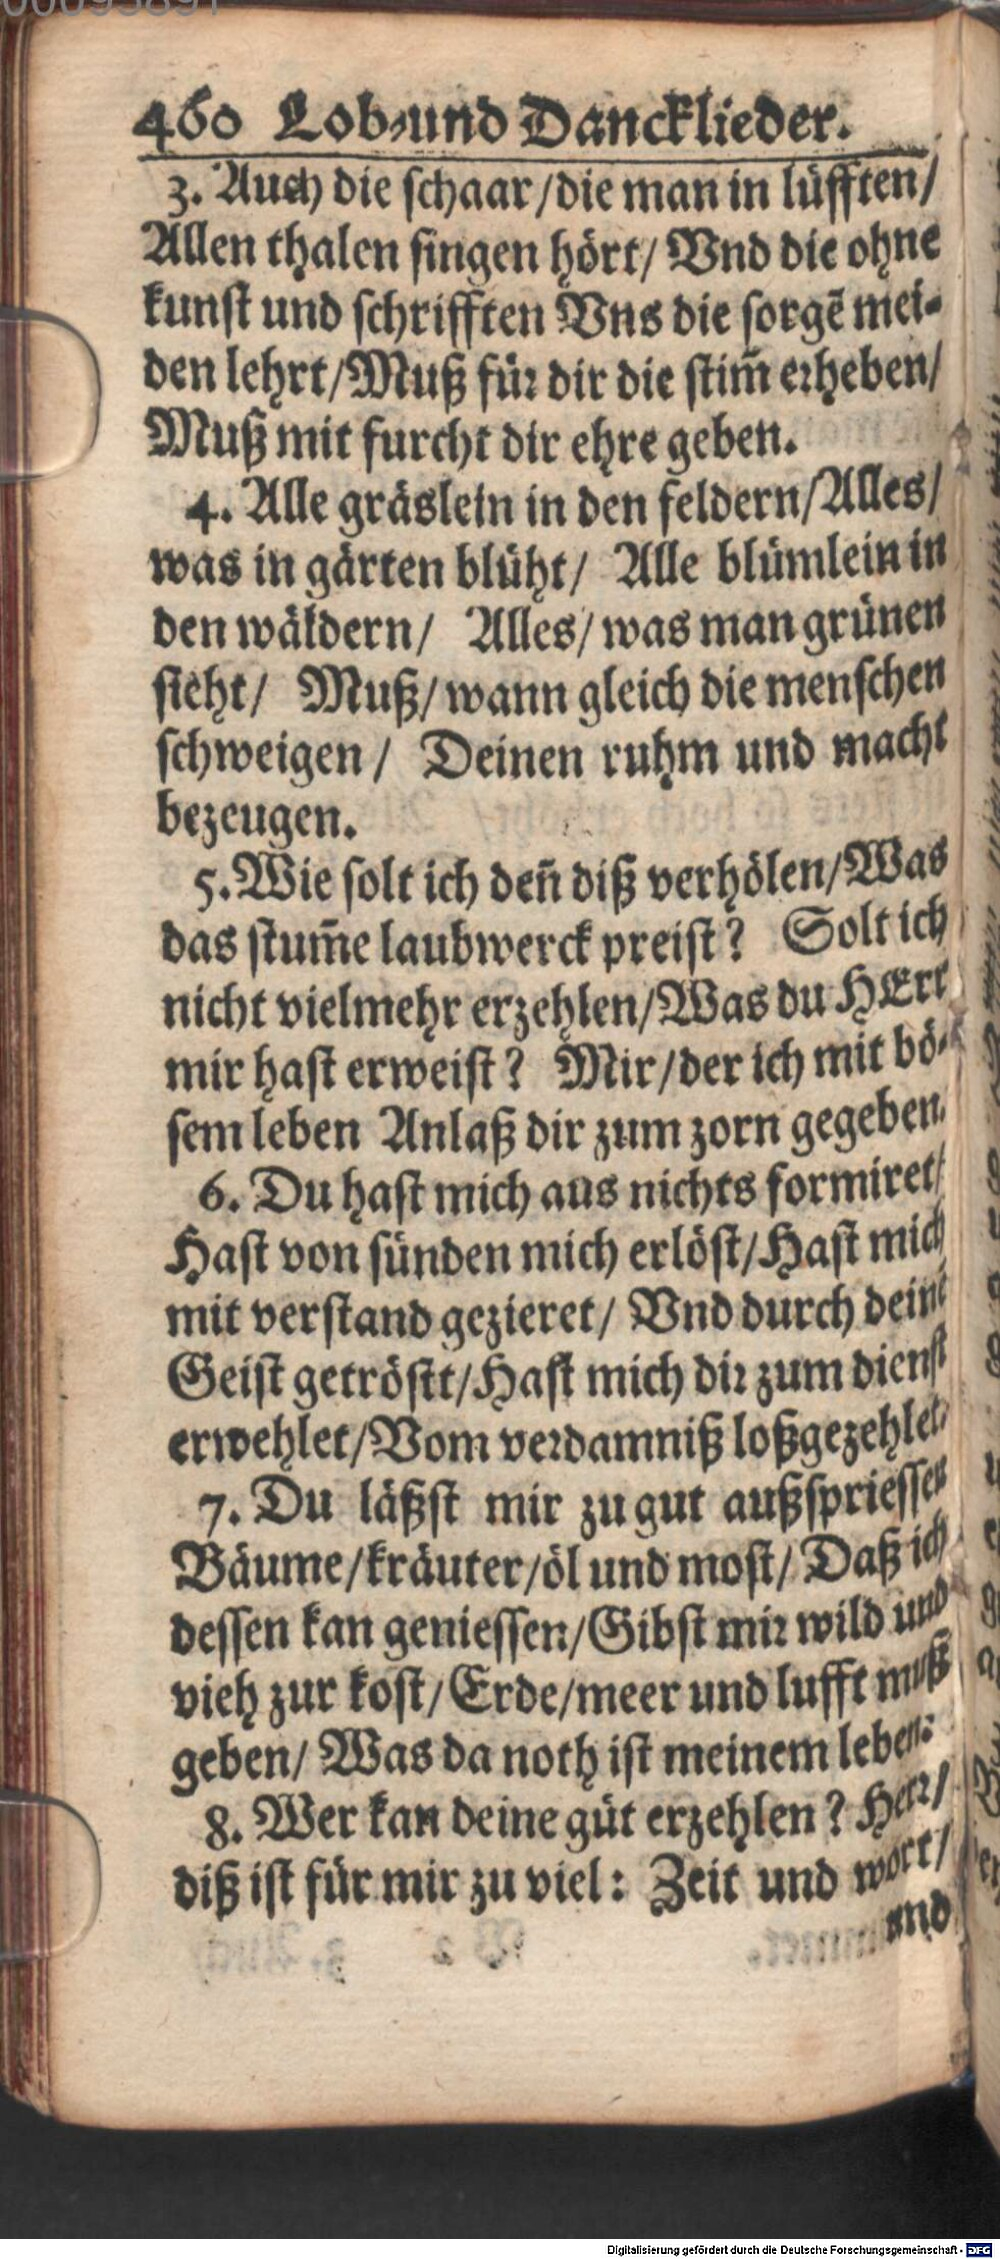 460 Lob-und Dancklieder.
3. Auch die schaar/die man in lüfften/
Allen thalen singen hört/ Vnd die ohne
kunst und schrifften Vns die sorgē mei-
den lehrt/Muß für dir die stim̄ erheben/
Muß mit furcht dir ehre geben.
4. Alle gräslein in den feldern/Alles/
was in gärten blüht/ Alle blümlein in
den wäldern/ Alles/ was man grünen
sieht/ Muß/ wann gleich die menschen
schweigen/ Deinen ruhm und macht
bezeugen.
5. Wie solt ich den̄ diß verhölen/Was
das stum̄e laubwerck preist? Solt ich
nicht vielmehr erzehlen/Was du HErr
mir hast erweist? Mir/der ich mit bö-
sem leben Anlaß dir zum zorn gegeben.
6. Du hast mich aus nichts formiret/
Hast von sünden mich erlöst/Hast mich
mit verstand gezieret/ Vnd durch deinē
Geist getröstt/Hast mich dir zum dienst
erwehlet/Vom verdamniß loßgezehlet.
7. Du läßst mir zu gut außspriessen
Bäume/kräuter/öl und most/ Daß ich
dessen kan geniessen/Gibst mir wild und
vieh zur kost/Erde/meer und lufft muß
geben/ Was da noth ist meinem leben.
8. Wer kan deine güt erzehlen? Herr/
diß ist für mir zu viel: Zeit und wort/
und
Digitalisierung gefördert durch die Deutsche Forschungsgemeinschaft - DFG